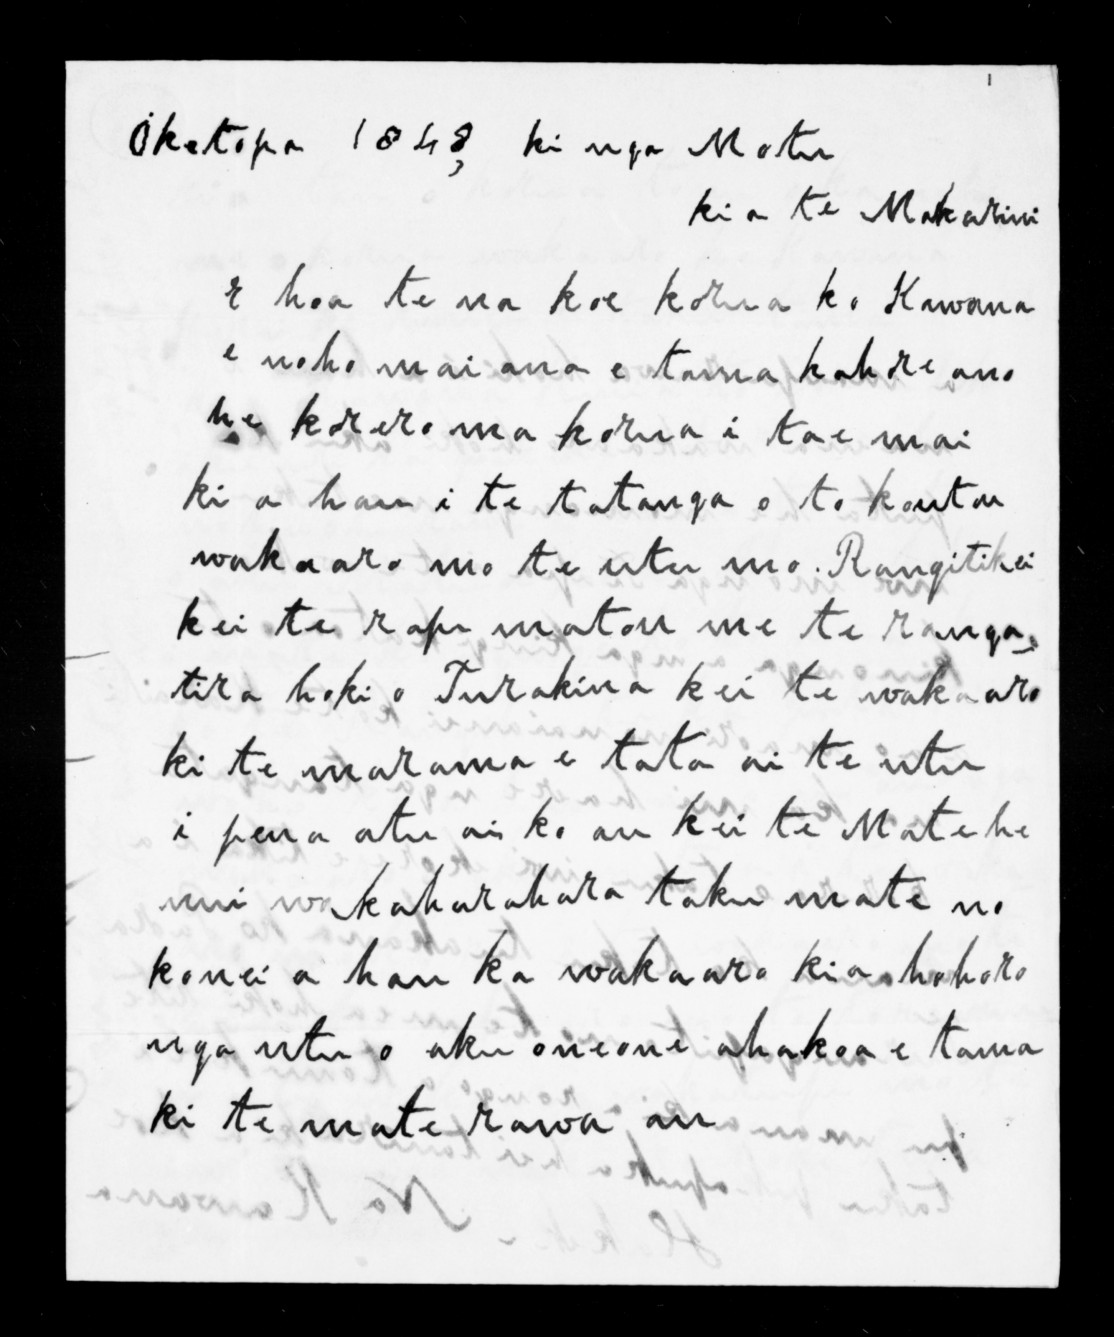 Oketopa 1848, ki nga Motu
kia te Makarini
E hoa te na koe korua ko Kawana
e noho mai ana e tama kahore ano
he korero ma korua i tae mai
ki a hau i te tatanga o to koutou
wakaaro mo te utu mo. Rangitikei
kei te rapu matou me te ranga
tira hoki o Turakina kei te wakaaro
ki te marama e tata ai te utu
i pena atu ai ko au kei te Mate he
nui wakaharahara taku mate no
konei a hau ka wakaaro kia hohoro
nga utu o aku oneone ahakoa e tama
ki te mate rawa au